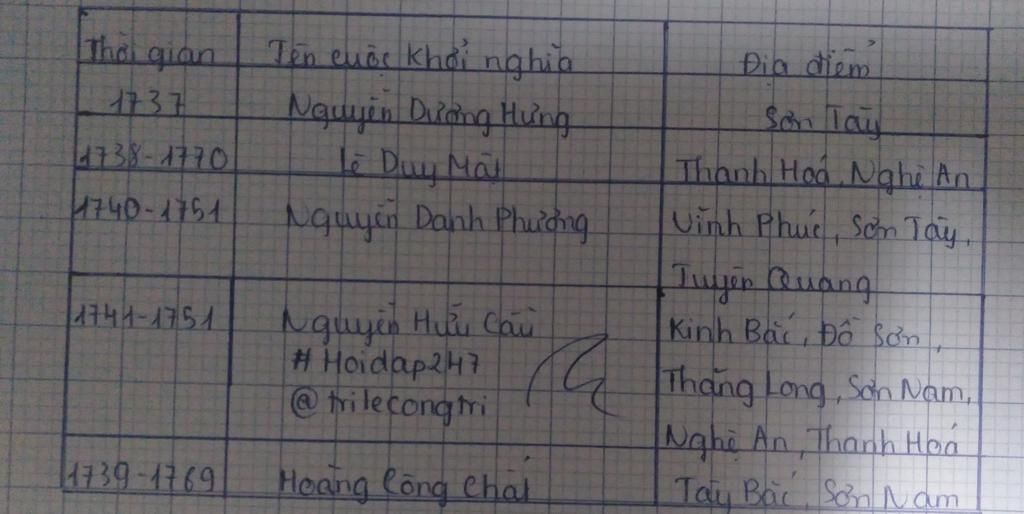 Thời gian Tên cuộc khởi nghĩa Địa điểm
1737 Nguyễn Dương Hưng Sơn Tây
1738-1770 Lê Duy Mật Thanh Hoá, Nghệ An
1740-1751 Nguyễn Danh Phương Vĩnh Phúc, Sơn Tây,
Tuyên Quang
1741-1751 Nguyễn Hữu Cầu Kinh Bắc, Đồ Sơn,
#Hoidap247 Thăng Long, Sơn Nam,
@trilecongtri
Nghệ An, Thanh Hoá
1739-1769 Hoàng Công Chất Tây Bắc, Sơn Nam